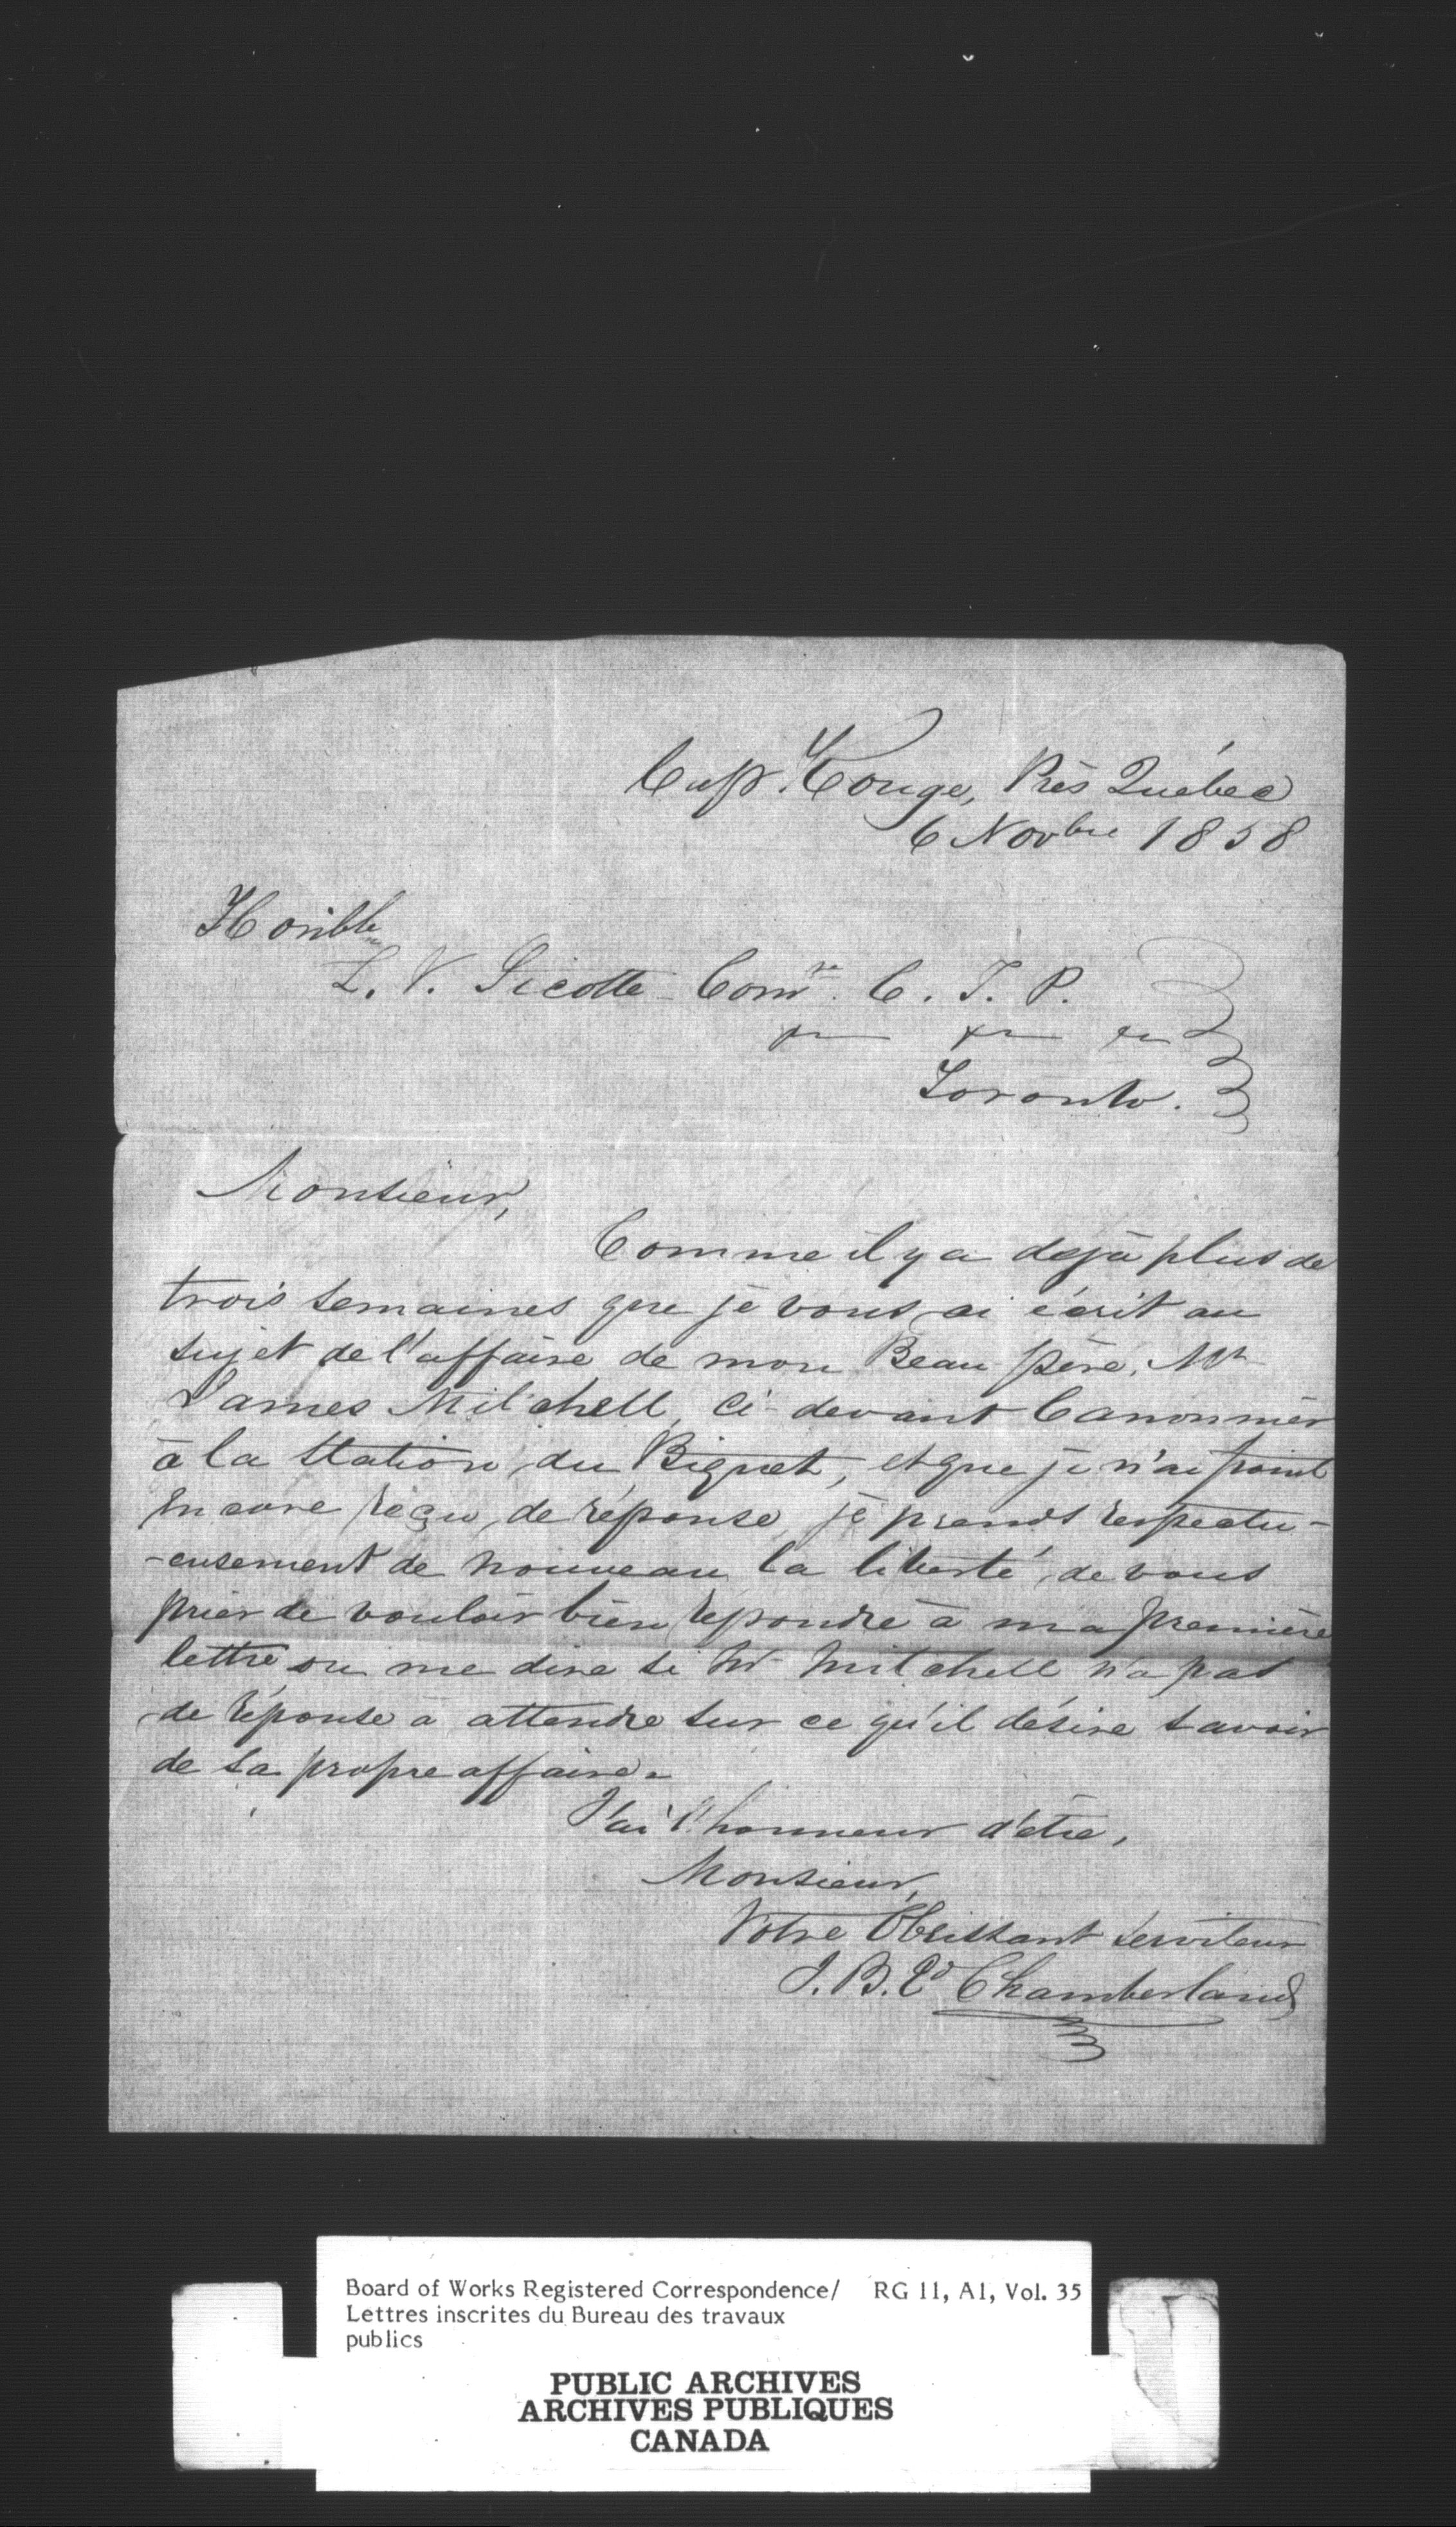 Cap Rouge, Près Québec
6 Novbre 1858
Honble
L. V. Sicotte Comre. C. T. P.
Toronto.
Monsieur,
Comme il y a dejà plus de
trois semaines que je vous ai écrit au
sujet de l'affaire de mon Beau-père, Mr
James Mitchell, ci-devant Canonnier
à la Station du Biquet, et que je n'ai point
encore reçu de réponse, je prends respectu-
-eusement de nouveau la liberté de vous
prier de vouloir bien repondre à ma première
lettre ou me dire si Mr Mitchell n'a pas
de réponse à attendre sur ce qu'il désire savoir
de sa propre affaire.
J'ai l'honneur d'être,
Monsieur,
Votre Obéissant serviteur
J. B. Ed Chamberland
Board of Works Registered Correspondence/ RG 11, A1, Vol. 35
Lettres inscrites du Bureau des travaux
publics
PUBLIC ARCHIVES
ARCHIVES PUBLIQUES
CANADA